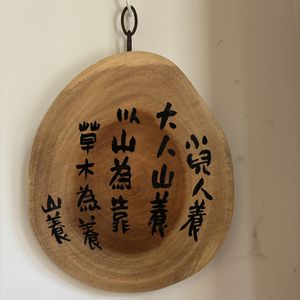 小兒人養
大人山養
以山為靠
草木為養
山養